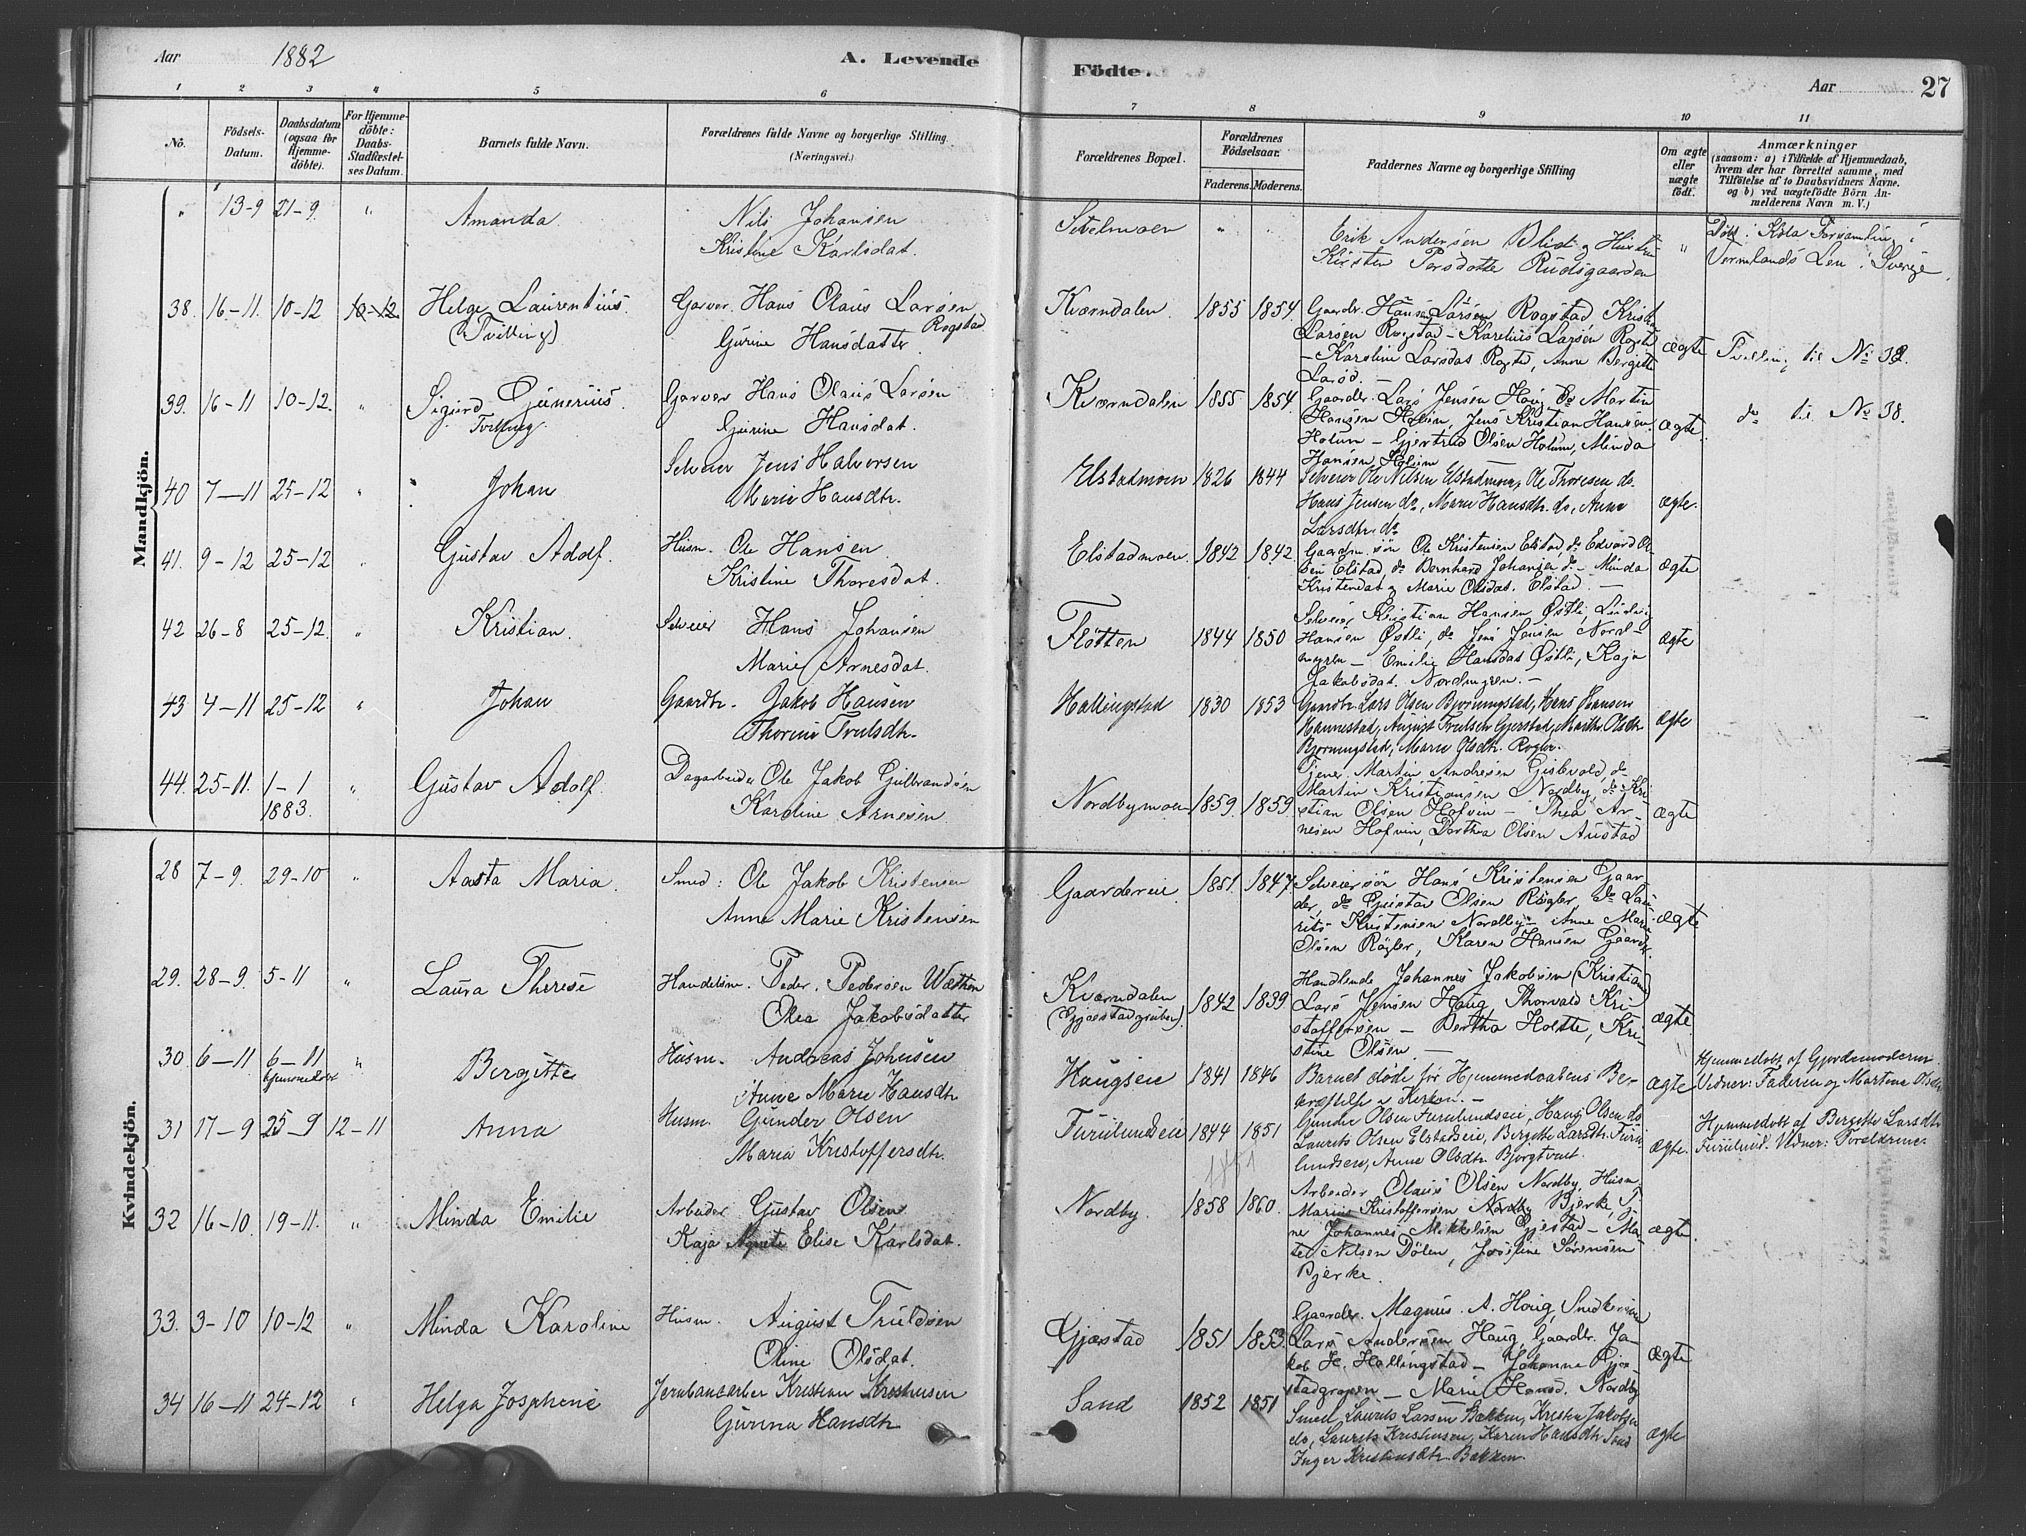 Aar 1882 A. Levende Födte. Aar 27
1 2 3 4 5 6 7 8 9 10 11
No.
Födsels-Datum.
Daabsdatum (ogsaa for Hjemme-döbte).
For Hjemme-döbte: Daabs-Stadfæstel-ses Datum.
Barnets fulde Navn.
Forældrenes fulde Navne og borgerlige Stilling
(Næringsvei.)
Forældrenes Bopæl.
Forældrenes Födselsaar.
Faderens. Moderens.
Faddernes Navne og borgerlige Stilling
Om ægte eller uægte födt.
Anmærkninger
(saasom: a) i Tilfælde af Hjemmedaab,
hvem der har forrettet samme, med
Tilföielse af to Daabsvidners Navne.
og b) ved uægtefödte Börn An-
melderens Navn m. V.)
Mandkjön.
" 13-9 21-9 " Amanda Nils Johansen
Kristine Karlsdat.
Setelmoen " " Erik Andersen
Kirsten Persdotte Rudsgaarden
" Döbt i Köla Forsamling i
Vermlands Len i Sverige.
38. 16-11 10-12 10-12 Helge Laurentius
(Tvilling)
Garver Hans Olaus Larsen
Rogstad
Gurine Hansdatter
Kværndalen 1855 1854 Gaardbr. Hans Larsen Rogstad
Larsen Rogstad - Karelius Larsen
- Karoline Larsdat Anne Bergitte
ægte Tvilling til No 39.
39. 16-11 10-12. " Sigurd Gunerius
Tvilling
Garver Hans Olaus Larsen
Gurine Hansdat.
Kværndalen 1855 1854 Gaardbr. Lars Jensen Haug do Martin
Hansen Holum, Jens Kristian Hansen
Holum - Gjertrud Olsen Holum, Minda
Hansen Holum
ægte. do til No 38.
40 7-11 25-12 " Johan Selveier Jens Halvorsen
Marie Hansdtr.
Elstadmoen 1826 1844 Selveier Ole Nilsen Elstadmoen, Ole Thoresen do.
Hans Jensen do, Marie Hansdtr. do, Anne
Larsdtr. do
ægte.
41. 9-12 25-12 " Gustav Adolf. Husm. Ole Hansen
Kristine Thoresdat.
Elstadmoen. 1842 1842 Gaardm. søn Ole Kristensen Elstad, do Edvard Ol-
sen Elstad do Bernhard Johansen do - Minda
Kristendat og Marie Olsdat. Elstad. -
ægte
42 26-8 25-12. " Kristian. Selveier Hans Johansen
Marie Arnesdat.
Fløtten 1844 1850 Selveier, Kristian Hansen Østli, Ludvig
Hansen Østli, do Jens Jensen Nord-
myren - Emilie Hansdat Østli, Kaja
Jakobsdat. Nordmyren. -
ægte
43 4-11 25-12 " Johan Gaardbr. Jakob Hansen
Thorine Trulsdtr.
Hallingstad 1830 1853 Gaardbr. Lars Olsen Bjørningstad, Hans Hansen
Hannestad, August Trulsen Gjestad, Marthe Olsdtr
Bjørningstad, Marie Olsdtr. Røgler.
ægte
44. 25-11. 1-1
1883.
" Gustav Adolf. Dagarbeider Ole Jakob Gulbrandsen
Karoline Arnesen
Nordbymoen 1859. 1859. Tjener Martin Andresen Gislevold, do
Martin Kristiansen Nordby, do Kri-
stian Olsen Hofvin - Thea Ar-
nesen Hofvin, Dorthea Olsen Austad
ægte
Kvindekjön.
28 7-9. 29-10 " Aasta Maria. Smed: Ole Jakob Kristensen
Anne Marie Kristensen
Gaardereie 1851. 1847. Selveiersøn Hans Kristensen Gaar-
der, do Gustav Olsen Røgler, do Lau-
rits Kristensen Nordby - Anne Marie
Olsen Røgler, Karen Hansen Gaarder.
ægte
29. 28-9. 5-11 " Laura Therese Handelsm. Peder Pedersen Wæthen
Olea Jakobsdatter
Kværndalen
(Gjæstadgruben).
1842 1839 Handlende Johannes Jakobsen (Kristian)
Lars Jensen Haug Thorvald Kri-
stoffersen - Berthea Holtte, Kri-
stine Olsen. -
ægte
30. 6-11 6-11
hjemmedøbt
" Bergitte Husm. Andreas Johnsen
Anne Marie Hansdtr.
Haugseie 1841 1846 Barnet døde før Hjemmedaabens Be-
kræftelse i Kirken. -
ægte Hjemmedøbt af Gjordemoderen
Vidner: Faderen og Martine Olsdtr.
31 17-9 25-9 12-11 Anna Husm. Gunder Olsen
Maria Kristoffersdtr.
Furulundseie 1844 1851 Gunder Olsen Furulundseie, Hans Olsen do.
1851
Laurits Olsen Elstadeie, Bergitte Larsdtr. Furu-
lundseie, Anne Olsdtr.
ægte. Hjemmedøbt af Bergitte Larsdtr.
Furulund. Vidner: Forældrene.
32 16-10. 19-11. " Minda Emilie Arbeider Gustav Olsen
Kaja Agnete Elise Karlsdat.
Nordby. 1858 1860. Arbeider Olaus Olsen Nordby, Husm.
Marius Kristoffersen Nordby Bjerke, Tj-
ner Johannes Mikkelsen Gjestad - Ma-
te Nilsen Dölen, Josefine Sørensen
Bjerke.
ægte.
33. 3-10 10-12 " Minda Karoline Husm. August Truldsen
Oline Olsdat.
Gjæstad 1851 1853. Gaardbr. Magnus A. Houg,
Lars Andersen Haug, Gaardbr. Ja-
kob H. Hallingstad - Johanne
stadgropen - Marie Hansd. Nordby
ægte
34 16-11 24-12 " Helga Josephine Jernbanearbei. Kristian Kristensen
Gurina Hansdtr
Sand 1852 1851 Smed Laurits Larsen Bakken, Kristen Jakobsen
do, Laurits Kristensen, Karen Hansdtr. Sand
Inger Kristiansdtr. Bakken.
ægte